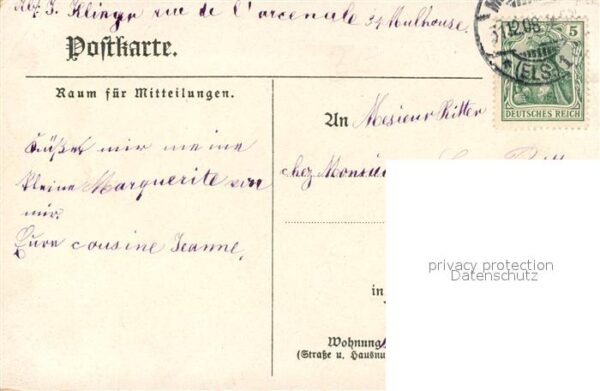 Abs. J. Klinger rue de l'arcenale 34 Mulhouse.
Postkarte.
31.12.08
(ELS.) 1
5
DEUTSCHES REICH
Raum für Mitteilungen.
An Mesieur Ritter
chez Monsieu
mir meine
kleine Marguerite von
mir.
Eure cousine Jeanne,
in
Wohnung
(Straße u. Hausnu
privacy protection
Datenschutz